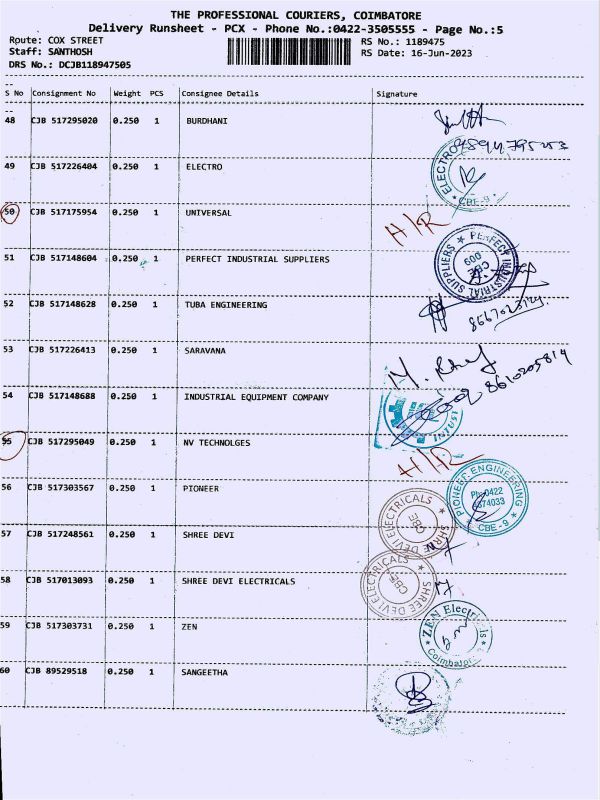 THE PROFESSIONAL COURIERS, COIMBATORE
Delivery Runsheet - PCX - Phone No.:0422-3505555 - Page No.:5
Route: COX STREET RS No.: 1189475
Staff: SANTHOSH RS Date: 16-Jun-2023
DRS No.: DCJB118947505
S No Consignment No Weight PCS Consignee Details Signature
48 CJB 517295020 0.250 1 BURDHANI
49 CJB 517226404 0.250 1 ELECTRO
ELECTRO CBE-9
50 CJB 517175954 0.250 1 UNIVERSAL
H/R
51 CJB 517148604 0.250 1 PERFECT INDUSTRIAL SUPPLIERS
PERFECT INDUSTRIAL SUPPLIERS CBE 009
52 CJB 517148628 0.250 1 TUBA ENGINEERING
53 CJB 517226413 0.250 1 SARAVANA
8610205814
54 CJB 517148688 0.250 1 INDUSTRIAL EQUIPMENT COMPANY
55 CJB 517295049 0.250 1 NV TECHNOLGES
H/R
56 CJB 517303567 0.250 1 PIONEER
PIONEER ENGINEERING Ph:0422 CBE-9
57 CJB 517248561 0.250 1 SHREE DEVI
SHREE DEVI ELECTRICALS CBE
58 CJB 517013093 0.250 1 SHREE DEVI ELECTRICALS
SHREE DEVI ELECTRICALS CBE
59 CJB 517303731 0.250 1 ZEN
ZEN Electricals
60 CJB 89529518 0.250 1 SANGEETHA